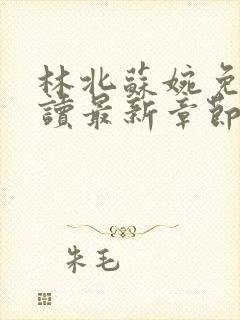 林北蘇婉免
讀最新章節
朱毛